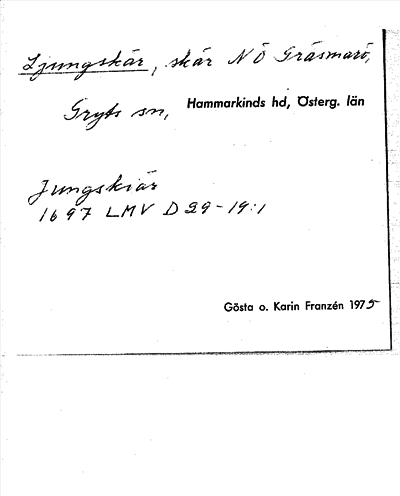 Ljungskär, skär NÖ Gräsmarö,
Gryts sn, Hammarkinds hd, Österg. län
Jungskiär
1697 LMV D29-19:1
Gösta o. Karin Franzén 1975